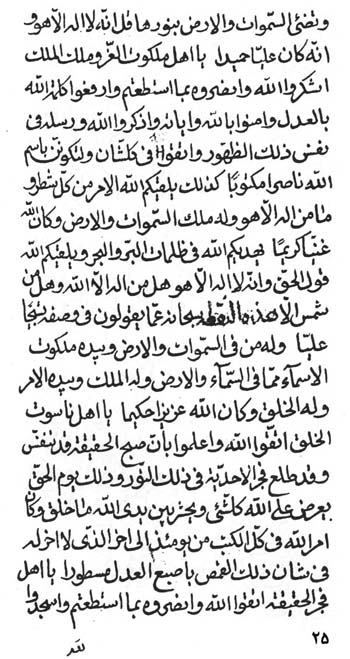 وتضئ السموات والارض بنورها قل انه لا اله الا هو و
انه كان عليّا حميدا يا اهل ملكوت العزّ وملك الملك
اشكروا الله وانصروه بما استطعتم وارفعوا كلمة الله
بالعدل وامنوا بالله واياته واذكروا الله ورسله فى
نفس ذلك الظهور واتقوا فى كلشأن ولتكونن باسم
الله ناصرا مكتوبًا كذلك يلقيكم الله الامر من كل شطر و
ما من اله الا هو وله ملك السموات والارض وكان الله
غنيّا كريمًا يهديكم الله فى ظلمات البرّ والبحر ويلقيكم الله
قول الحق وانه لا اله الا هو هل من اله الا الله وهل من
شمس الا هذه النقطة سبحانه عمّا يقولون فى وصفه تسبيحًا
عليّا وله من فى السموات والارض وبيده ملكوت
الاسمآء ممّا فى السمآء والارض وله الملك وبيده الامر
وله الخلق وكان الله عزيزا حكيما يا اهل ناسوت
الخلق اتقوا الله واعلموا بأن صبح الحقيقة قد يتنفس
وقد طلع فجر الاحدية فى ذلك النور وذلك يوم الحق
يعرض على الله كلشئ ويحشر بين يدى الله ما خلق وكان
امر الله فى كل الكتب من يومئذ الى اخر الذى لا اخر له
فى شان ذلك القمص باصبع العدل مسطورا يا اهل
فجر الحقيقة اتقوا الله وانصروه بما استطعتم واسجدوا
٢٥
لله